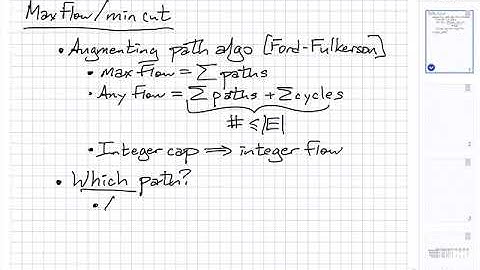 Max Flow/min cut
• Augmenting path algo [Ford-Fulkerson]
• max Flow = ∑ paths
• Any flow = ∑ paths + ∑ cycles
# ≤ |E|
• Integer cap ⟹ integer flow
• Which path?
•